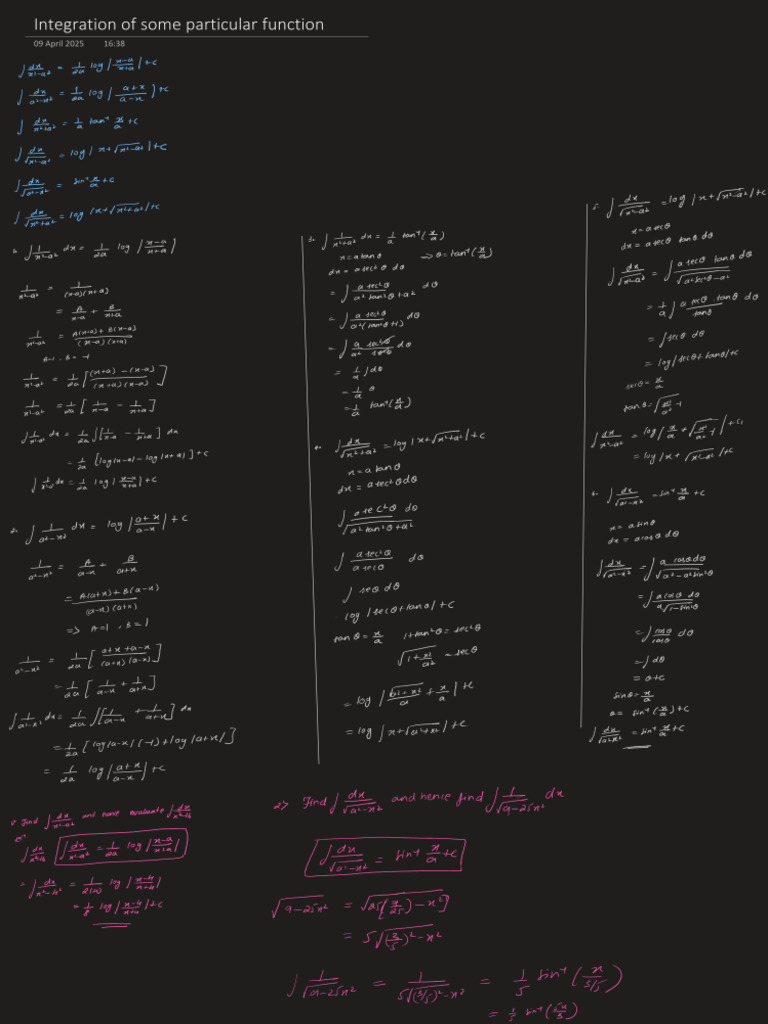 Integration of some particular function
09 April 2025 16:38
∫ dx/(x²-a²) = 1/2a log|(x-a)/(x+a)| + c
∫ dx/(a²-x²) = 1/2a log|(a+x)/(a-x)| + c
∫ dx/(x²+a²) = 1/a tan⁻¹ x/a + c
∫ dx/√(x²-a²) = log|x+√(x²-a²)| + c
∫ dx/√(a²-x²) = sin⁻¹ x/a + c
∫ dx/√(x²+a²) = log|x+√(x²+a²)| + c
1. ∫ 1/(x²-a²) dx = 1/2a log|(x-a)/(x+a)|
1/(x²-a²) = 1/((x-a)(x+a))
= A/(x-a) + B/(x+a)
1/(x²-a²) = (A(x+a)+B(x-a))/((x-a)(x+a))
A=1, B=-1
1/(x²-a²) = 1/2a [((x+a)-(x-a))/((x+a)(x-a))]
1/(x²-a²) = 1/2a [1/(x-a) - 1/(x+a)]
∫ 1/(x²-a²) dx = 1/2a ∫[1/(x-a) - 1/(x+a)] dx
= 1/2a [log|x-a| - log|x+a|] + c
∫ 1/(x²-a²) dx = 1/2a log|(x-a)/(x+a)| + c
2. ∫ 1/(a²-x²) dx = log|(a+x)/(a-x)| + c
1/(a²-x²) = A/(a-x) B/(a+x)
= (A(a+x)+B(a-x))/((a-x)(a+x))
=> A=1, B=1
1/(a²-x²) = 1/2a [(a+x+a-x)/((a+x)(a-x))]
= 1/2a [1/(a-x) + 1/(a+x)]
∫ 1/(a²-x²) dx = 1/2a ∫[1/(a-x) + 1/(a+x)] dx
= 1/2a [log|a-x|(-1)+log|a+x|]
= 1/2a log|(a+x)/(a-x)| + c
3. ∫ 1/(x²+a²) dx = 1/a tan⁻¹(x/a)
x = a tanθ → θ = tan⁻¹(x/a)
dx = a sec²θ dθ
= ∫ a sec²θ/(a² tan²θ+a²) dθ
= ∫ a sec²θ/(a²(tan²θ+1)) dθ
= ∫ a sec²θ/(a² sec²θ) dθ
= 1/a ∫dθ
= 1/a θ
= 1/a tan⁻¹(x/a)
4. ∫ dx/√(x²+a²) = log|x+√(x²+a²)| + c
x = a tanθ
dx = a sec²θ dθ
∫ a sec²θ dθ/√(a² tan²θ+a²)
∫ a sec²θ/(a secθ) dθ
∫ secθ dθ
log|secθ+tanθ| + c
tanθ = x/a 1+tan²θ = sec²θ
√(1+x²/a²) = secθ
= log|√(a²+x²)/a + x/a| + c
= log|x+√(a²+x²)| + c
5. ∫ dx/√(x²-a²) = log|x+√(x²-a²)| + c
x = a secθ
dx = a secθ tanθ dθ
∫ dx/√(x²-a²) = ∫ a secθ tanθ dθ/√(a² sec²θ-a²)
= 1/a ∫ a secθ tanθ dθ/tanθ
= ∫secθ dθ
= log|secθ+tanθ|+c
secθ = x/a
tanθ = √(x²/a² -1)
∫ dx/√(x²-a²) = log|x/a + √(x²/a² -1)| + c₁
= log|x + √(x²-a²)| + c
6. ∫ dx/√(a²-x²) = sin⁻¹ x/a + c
x = a sinθ
dx = a cosθ dθ
∫ dx/√(a²-x²) = ∫ a cosθ dθ/√(a²-a² sin²θ)
= ∫ a cosθ dθ/(a√(1-sin²θ))
= ∫ cosθ/cosθ dθ
= ∫dθ
= θ+c
sinθ = x/a
θ = sin⁻¹(x/a) + c
∫ dx/√(a²-x²) = sin⁻¹ x/a + c
1) Find ∫ dx/(x²-a²) and have evaluate ∫ dx/(x²-16)
∫ dx/(x²-16) ∫ dx/(x²-a²) = 1/2a log|(x-a)/(x+a)|
= ∫ dx/(x²-4²) = 1/2(4) log|(x-4)/(x+4)|
= 1/8 log|(x-4)/(x+4)| + c
2) Find ∫ dx/√(a²-x²) and hence find ∫ 1/√(9-25x²) dx
∫ dx/√(a²-x²) = sin⁻¹ x/a + c
√(9-25x²) = √(25[(9/25)-x²])
= 5√((3/5)²-x²)
∫ 1/√(9-25x²) = 1/(5√((3/5)²-x²)) = 1/5 sin⁻¹(x/(3/5))
= 1/5 sin⁻¹(5x/3)